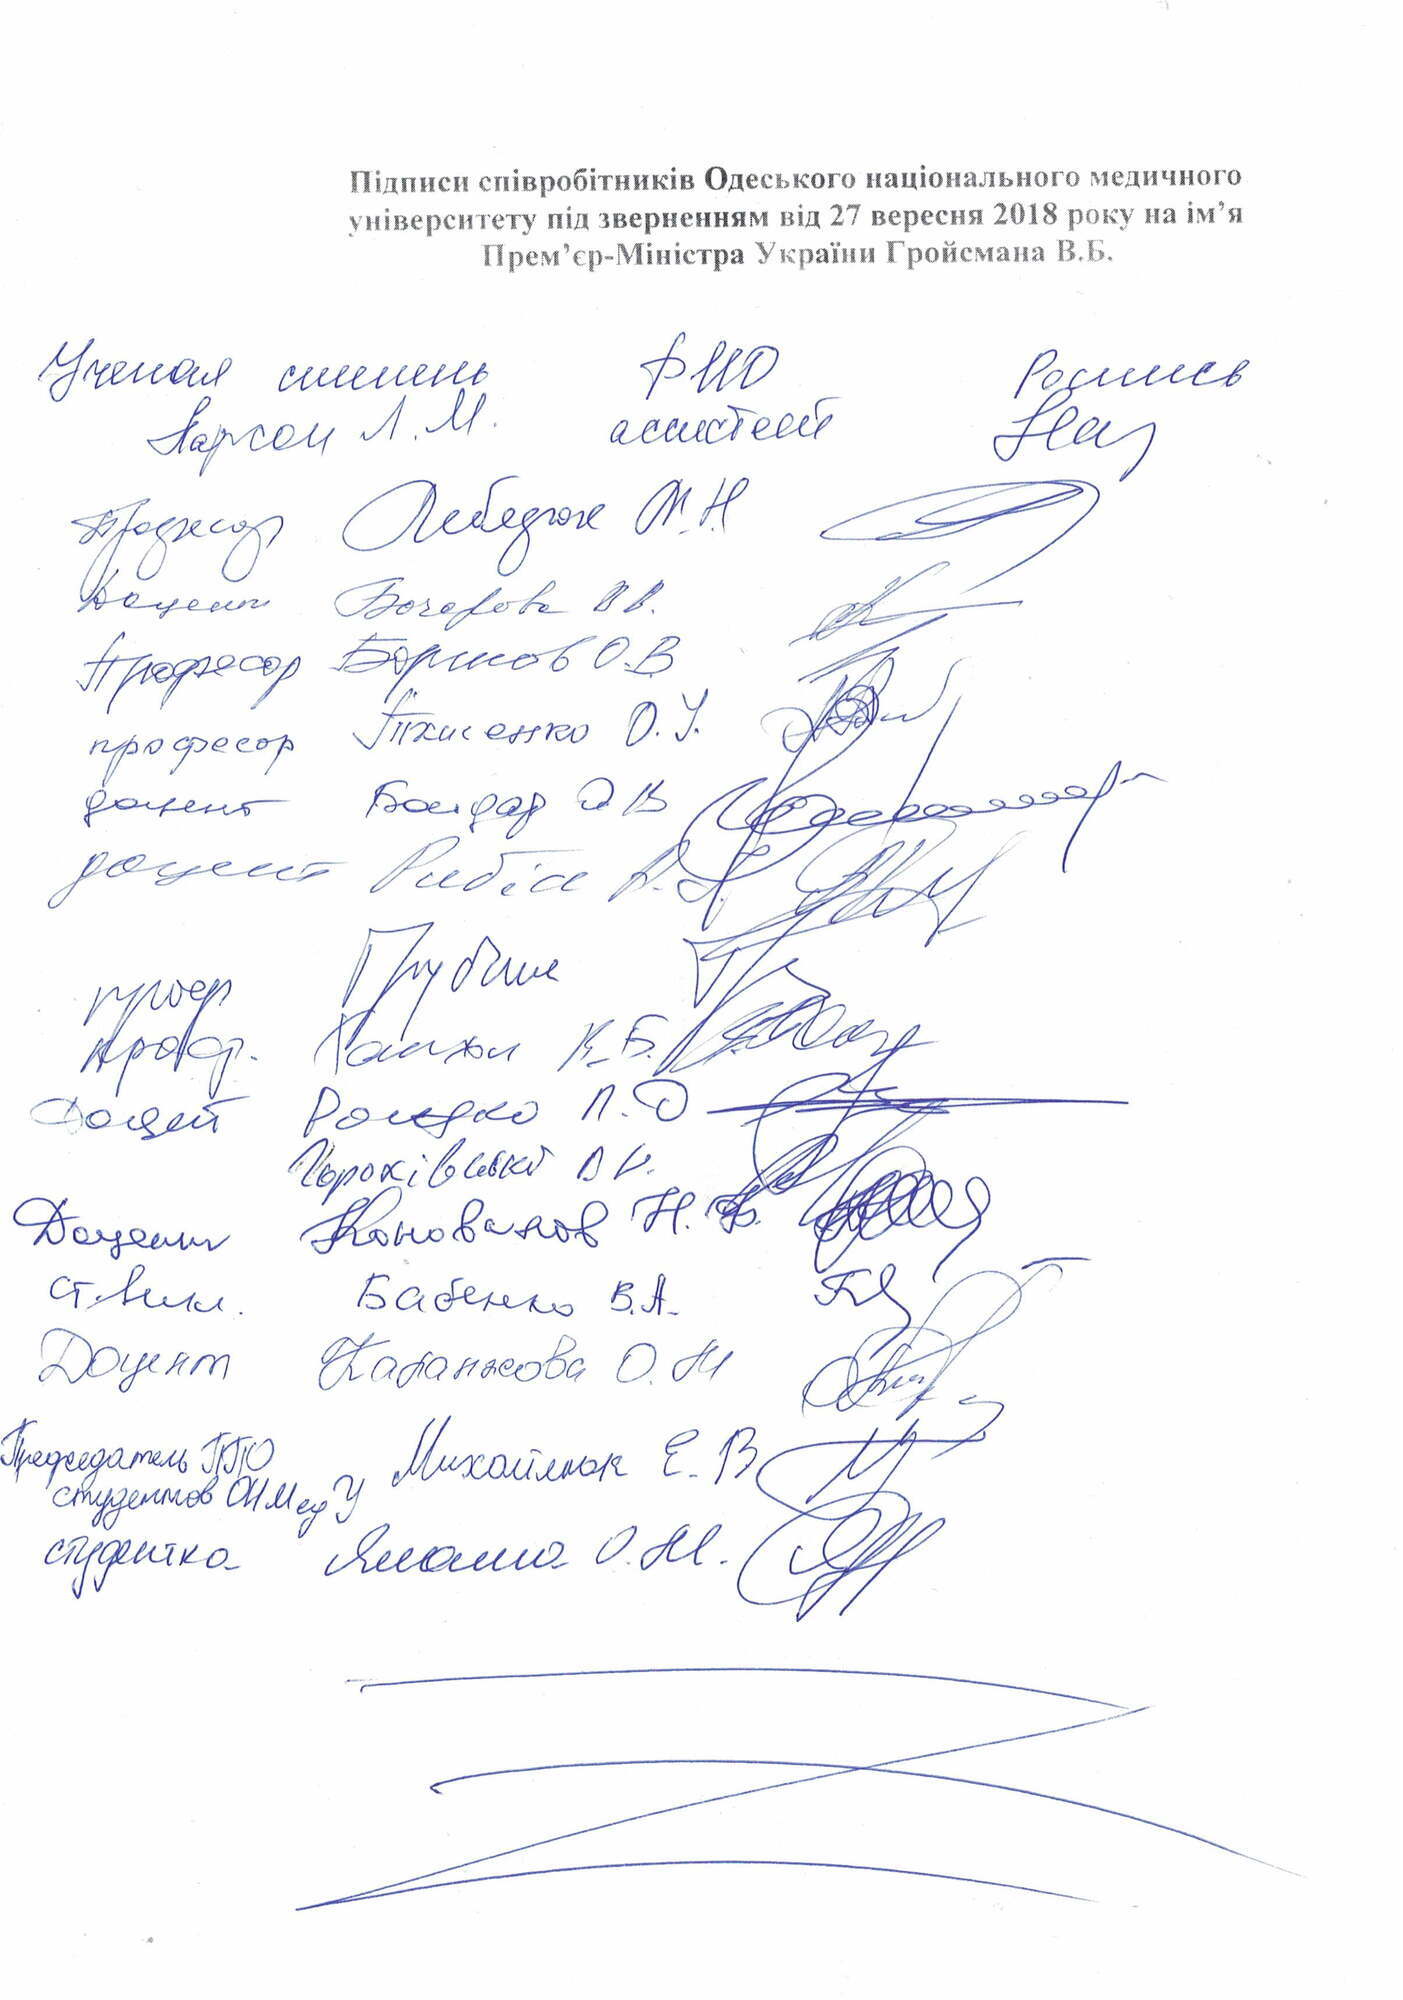 Підписи співробітників Одеського національного медичного
університету під зверненням від 27 вересня 2018 року на ім’я
Прем’єр-Міністра України Гройсмана В.Б.
Ученая степень ФИО Роспись
Л.М. ассистент
Професор Лебедюк М.Н.
Доцент Бочарова В.В.
Професор О.В
професор О.У.
доцент Бондар О В
доцент
проф
проф. К.Б.
Доцент П.Д
Гороховський В.Н.
Доцент Коновалов Н.Ф.
ст. викл. Бабенко В.А.
Доцент О.М
Председатель ППО
студентов ОНМедУ Михайлюк Е.В
студентка О.М.